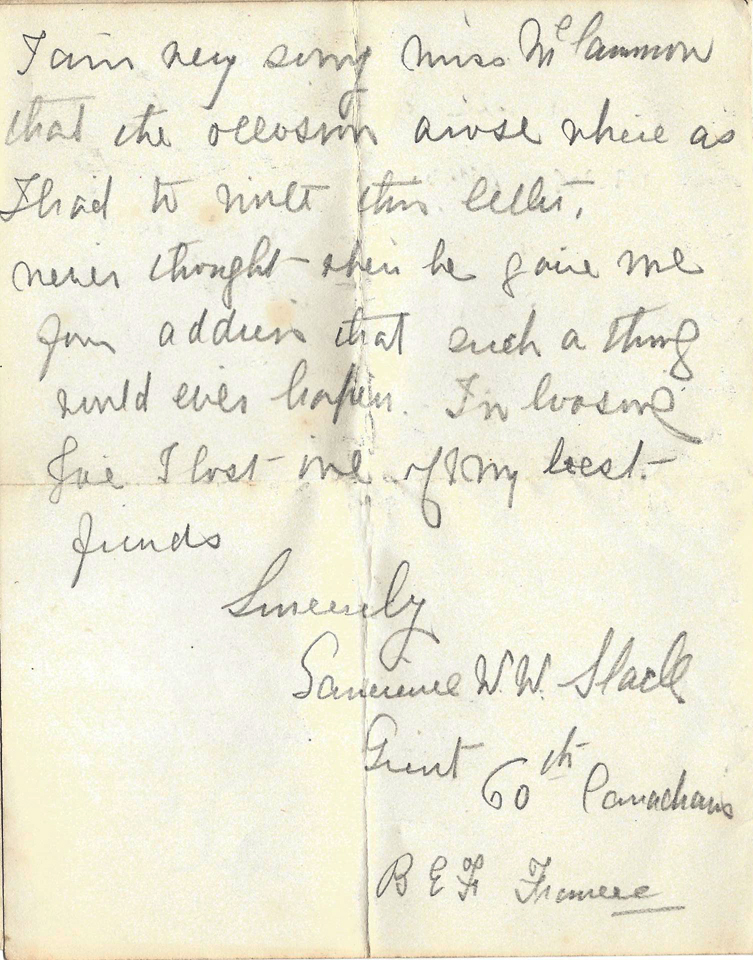 I am very sorry Miss McCammon
that the occosion arose where as
I had to write this letter,
never thought when he gave me
your address that such a thing
would ever happen. In loosing
Joe I lost one of my best
friends
Sincerely
Lawrence W.W. Slack
Lieut 60th Canadians
B E F France